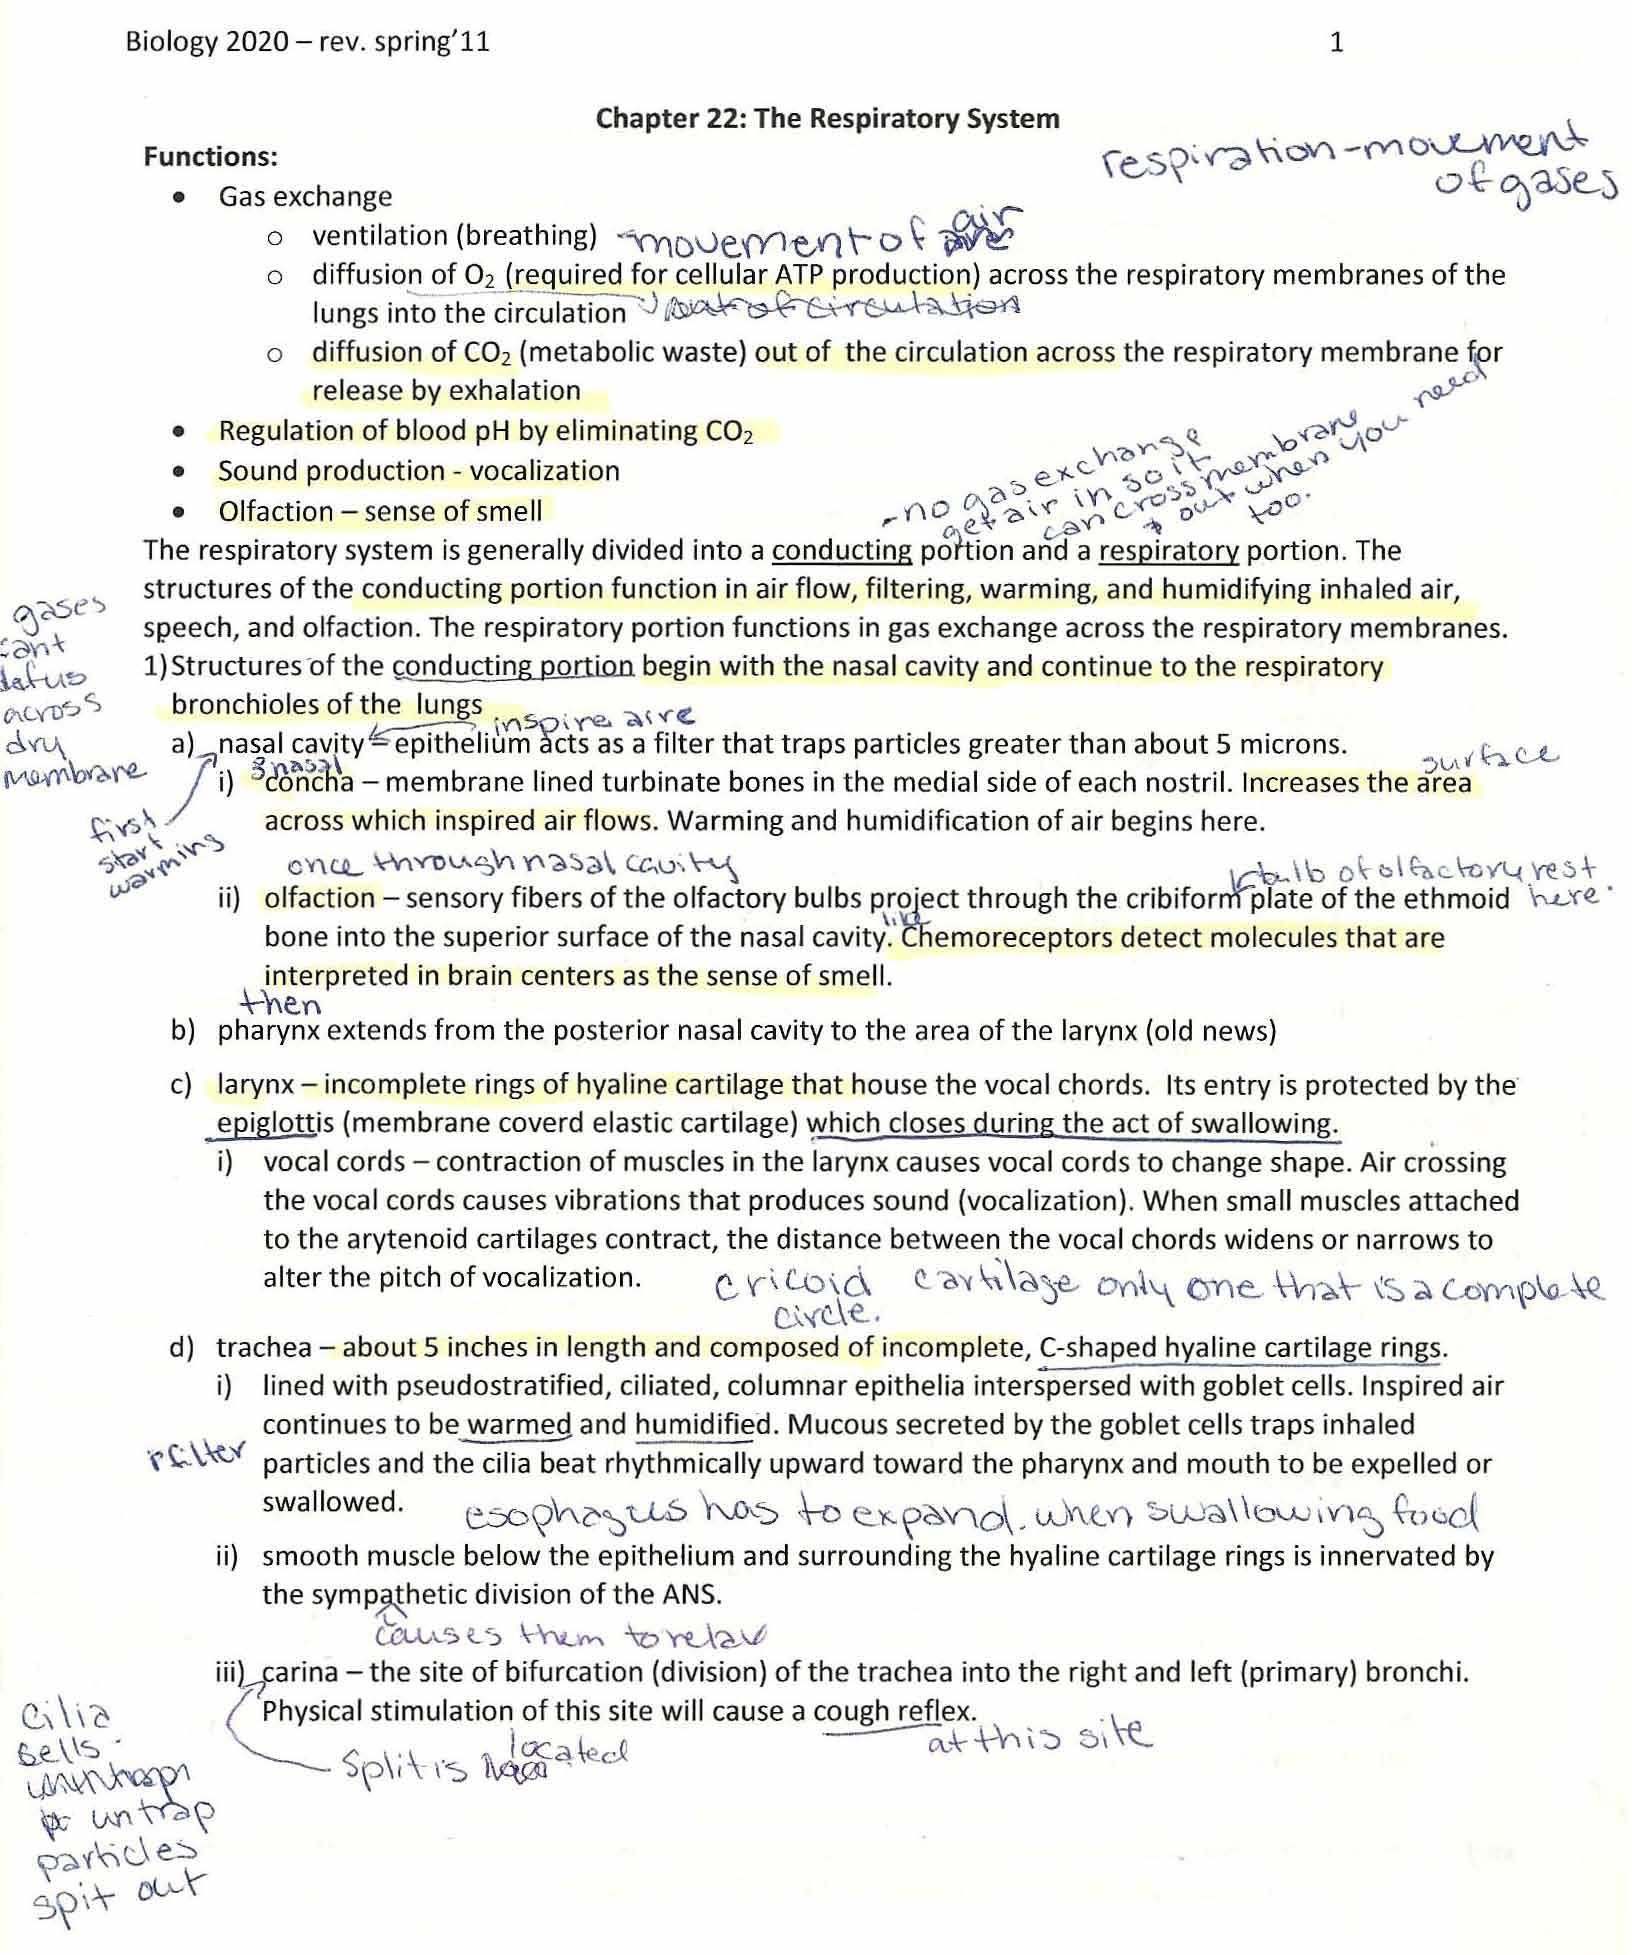 Biology 2020 – rev. spring'11 1
Chapter 22: The Respiratory System
respiration - movement
of gases
Functions:
• Gas exchange
o ventilation (breathing) - movement of air
o diffusion of O₂ (required for cellular ATP production) across the respiratory membranes of the
lungs into the circulation out of circulation
o diffusion of CO₂ (metabolic waste) out of the circulation across the respiratory membrane for
release by exhalation
• Regulation of blood pH by eliminating CO₂
• Sound production - vocalization
• Olfaction – sense of smell
- no gas exchange
get air in so it
can cross membrane
+ out when you need
too.
The respiratory system is generally divided into a conducting portion and a respiratory portion. The
structures of the conducting portion function in air flow, filtering, warming, and humidifying inhaled air,
speech, and olfaction. The respiratory portion functions in gas exchange across the respiratory membranes.
gases
cant
across
dry
membrane
1) Structures of the conducting portion begin with the nasal cavity and continue to the respiratory
bronchioles of the lungs
inspire aire
a) nasal cavity – epithelium acts as a filter that traps particles greater than about 5 microns.
3 nasal
surface
i) concha – membrane lined turbinate bones in the medial side of each nostril. Increases the area
across which inspired air flows. Warming and humidification of air begins here.
first
start
warming
once through nasal cavity
bulb of olfactory rest
here.
ii) olfaction – sensory fibers of the olfactory bulbs project through the cribiform plate of the ethmoid
bone into the superior surface of the nasal cavity. Chemoreceptors detect molecules that are
like
interpreted in brain centers as the sense of smell.
then
b) pharynx extends from the posterior nasal cavity to the area of the larynx (old news)
c) larynx – incomplete rings of hyaline cartilage that house the vocal chords. Its entry is protected by the
epiglottis (membrane coverd elastic cartilage) which closes during the act of swallowing.
i) vocal cords – contraction of muscles in the larynx causes vocal cords to change shape. Air crossing
the vocal cords causes vibrations that produces sound (vocalization). When small muscles attached
to the arytenoid cartilages contract, the distance between the vocal chords widens or narrows to
alter the pitch of vocalization.
cricoid cartilage only one that is a complete
circle.
d) trachea – about 5 inches in length and composed of incomplete, C-shaped hyaline cartilage rings.
i) lined with pseudostratified, ciliated, columnar epithelia interspersed with goblet cells. Inspired air
continues to be warmed and humidified. Mucous secreted by the goblet cells traps inhaled
filter
particles and the cilia beat rhythmically upward toward the pharynx and mouth to be expelled or
swallowed.
esophagus has to expand. when swallowing food
ii) smooth muscle below the epithelium and surrounding the hyaline cartilage rings is innervated by
the sympathetic division of the ANS.
causes them to relax
iii) carina – the site of bifurcation (division) of the trachea into the right and left (primary) bronchi.
Physical stimulation of this site will cause a cough reflex.
at this site
Split is located
Cilia
untrap
particles
spit out